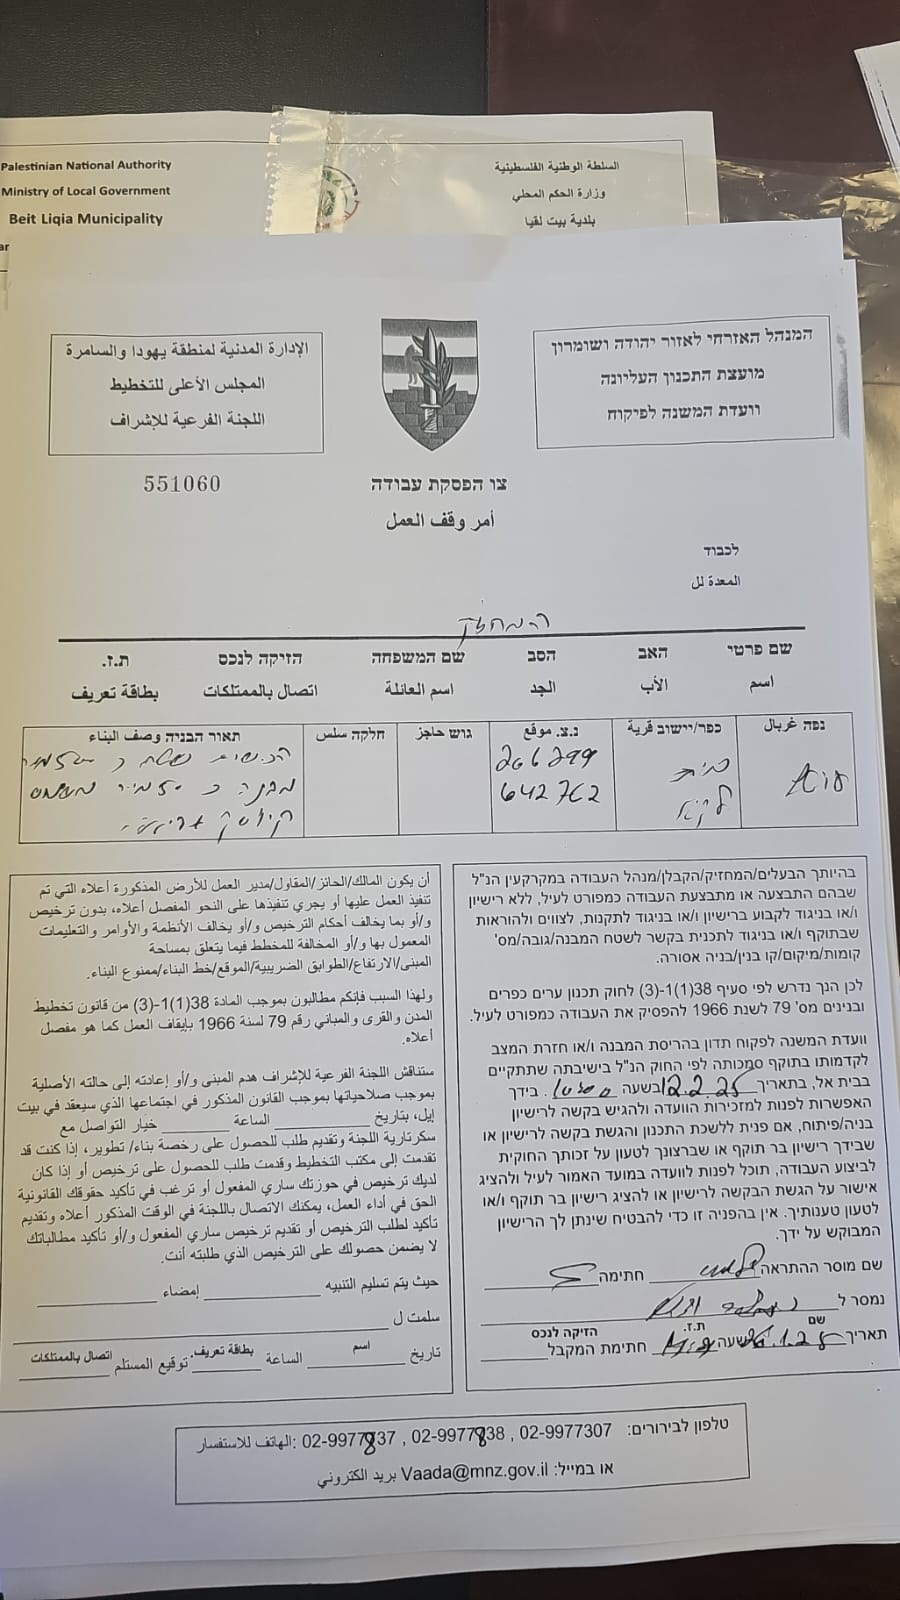 Palestinian National Authority
Ministry of Local Government
Beit Liqia Municipality
السلطة الوطنية الفلسطينية
وزارة الحكم المحلي
بلدية بيت لقيا
המנהל האזרחי לאזור יהודה ושומרון
מועצת התכנון העליונה
וועדת המשנה לפיקוח
الإدارة المدنية لمنطقة يهودا والسامرة
المجلس الأعلى للتخطيط
اللجنة الفرعية للإشراف
551060
צו הפסקת עבודה
أمر وقف العمل
לכבוד
المعدة لل
המחזיק
שם פרטי האב הסב שם המשפחה הזיקה לנכס ת.ז.
اسم الأب الجد اسم العائلة اتصال بالممتلكات بطاقة تعريف
נפה غربال כפר/יישוב قرية נ.צ. موقع גוש حاجز חלקה سلس תאור הבניה وصف البناء
בית 206299
לקיא 642762
בהיותך הבעלים/המחזיק/הקבלן/מנהל העבודה במקרקעין הנ"ל
שבהם התבצעה או מתבצעת העבודה כמפורט לעיל, ללא רישיון
ו/או בניגוד לקבוע ברישיון ו/או בניגוד לתקנות, לצווים ולהוראות
שבתוקף ו/או בניגוד לתכנית בקשר לשטח המבנה/גובה/מס'
קומות/מיקום/קו בנין/בניה אסורה.
לכן הנך נדרש לפי סעיף 38(1)1-(3) לחוק תכנון ערים כפרים
ובניינים מס' 79 לשנת 1966 להפסיק את העבודה כמפורט לעיל.
וועדת המשנה לפקוח תדון בהריסת המבנה ו/או חזרת המצב
לקדמותו בתוקף סמכותה לפי החוק הנ"ל בישיבתה שתתקיים
בבית אל, בתאריך 12.2.25 בשעה . בידך
האפשרות לפנות למזכירות הוועדה ולהגיש בקשה לרישיון
בניה/פיתוח, אם פנית ללשכת התכנון והגשת בקשה לרישיון או
שבידך רישיון בר תוקף או שברצונך לטעון על זכותך החוקית
לביצוע העבודה, תוכל לפנות לוועדה במועד האמור לעיל ולהציג
אישור על הגשת הבקשה לרישיון או להציג רישיון בר תוקף ו/או
לטעון טענותיך. אין בהפניה זו כדי להבטיח שינתן לך הרישיון
המבוקש על ידך.
שם מוסר ההתראה חתימה
נמסר ל
שם ת.ז. הזיקה לנכס
תאריך בשעה חתימת המקבל
أن يكون المالك/الحائز/المقاول/مدير العمل للأرض المذكورة أعلاه التي تم
تنفيذ العمل عليها أو يجري تنفيذها على النحو المفصل أعلاه، بدون ترخيص
و/أو بما يخالف أحكام الترخيص و/أو يخالف الأنظمة والأوامر والتعليمات
المعمول بها و/أو المخالفة للمخطط فيما يتعلق بمساحة
المبنى/الارتفاع/الطوابق الضريبية/الموقع/خط البناء/ممنوع البناء.
ولهذا السبب فإنكم مطالبون بموجب المادة 38(1)1-(3) من قانون تخطيط
المدن والقرى والمباني رقم 79 لسنة 1966 بإيقاف العمل كما هو مفصل
أعلاه.
ستناقش اللجنة الفرعية للإشراف هدم المبنى و/أو إعادته إلى حالته الأصلية
بموجب صلاحياتها بموجب القانون المذكور في اجتماعها الذي سيعقد في بيت
إيل، بتاريخ الساعة خيار التواصل مع
سكرتارية اللجنة وتقديم طلب للحصول على رخصة بناء/ تطوير، إذا كنت قد
تقدمت إلى مكتب التخطيط وقدمت طلب للحصول على ترخيص أو إذا كان
لديك ترخيص في حوزتك ساري المفعول أو ترغب في تأكيد حقوقك القانونية
الحق في أداء العمل، يمكنك الاتصال باللجنة في الوقت المذكور أعلاه وتقديم
تأكيد لطلب الترخيص أو تقديم ترخيص ساري المفعول و/أو تأكيد مطالباتك
لا يضمن حصولك على الترخيص الذي طلبته أنت.
حيث يتم تسليم التنبيه إمضاء
سلمت ل
اسم بطاقة تعريف. اتصال بالممتلكات
تاريخ الساعة توقيع المستلم
טלפון לבירורים: 02-9977307 , 02-9977838 , 02-9977837 :الهاتف للاستفسار
או במייל: Vaada@mnz.gov.il بريد الكتروني